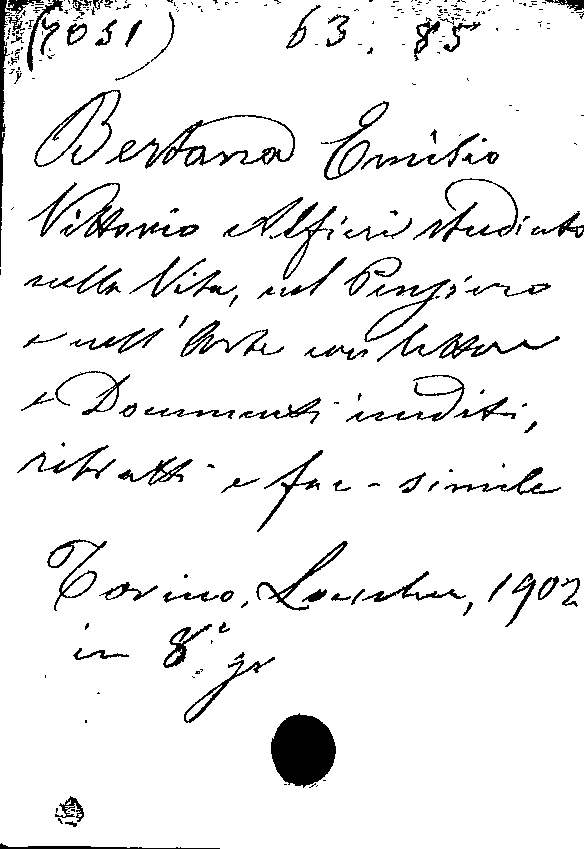 (7051) 63. 85
Bertana Emilio
Vittorio Alfieri studiato
nella Vita, nel Pensiero
e nell'Arte con lettere
e Documenti inediti,
ritratti e fac-simile
Torino, Loescher, 1902
in 8.° gr